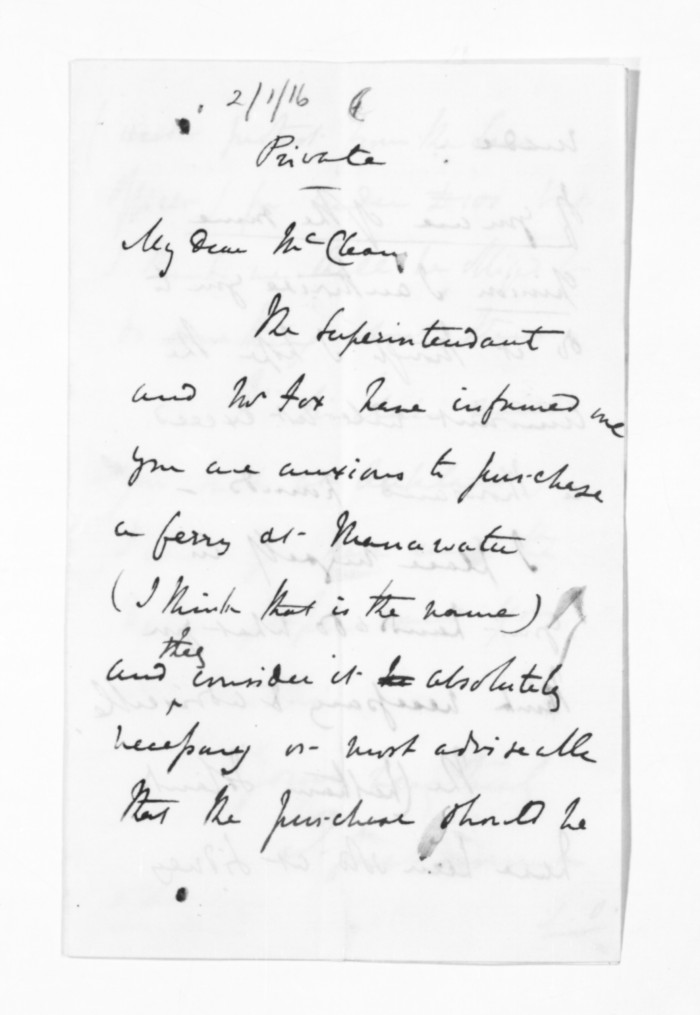 2/1/16
Private
My Dear McClean
The Superintendant
and Mr Fox have informed me
you are anxious to purchase
a ferry at Manawatu
(I think that is the name)
they
and consider it absolutely
necessary or most adviseable
that the purchase should be